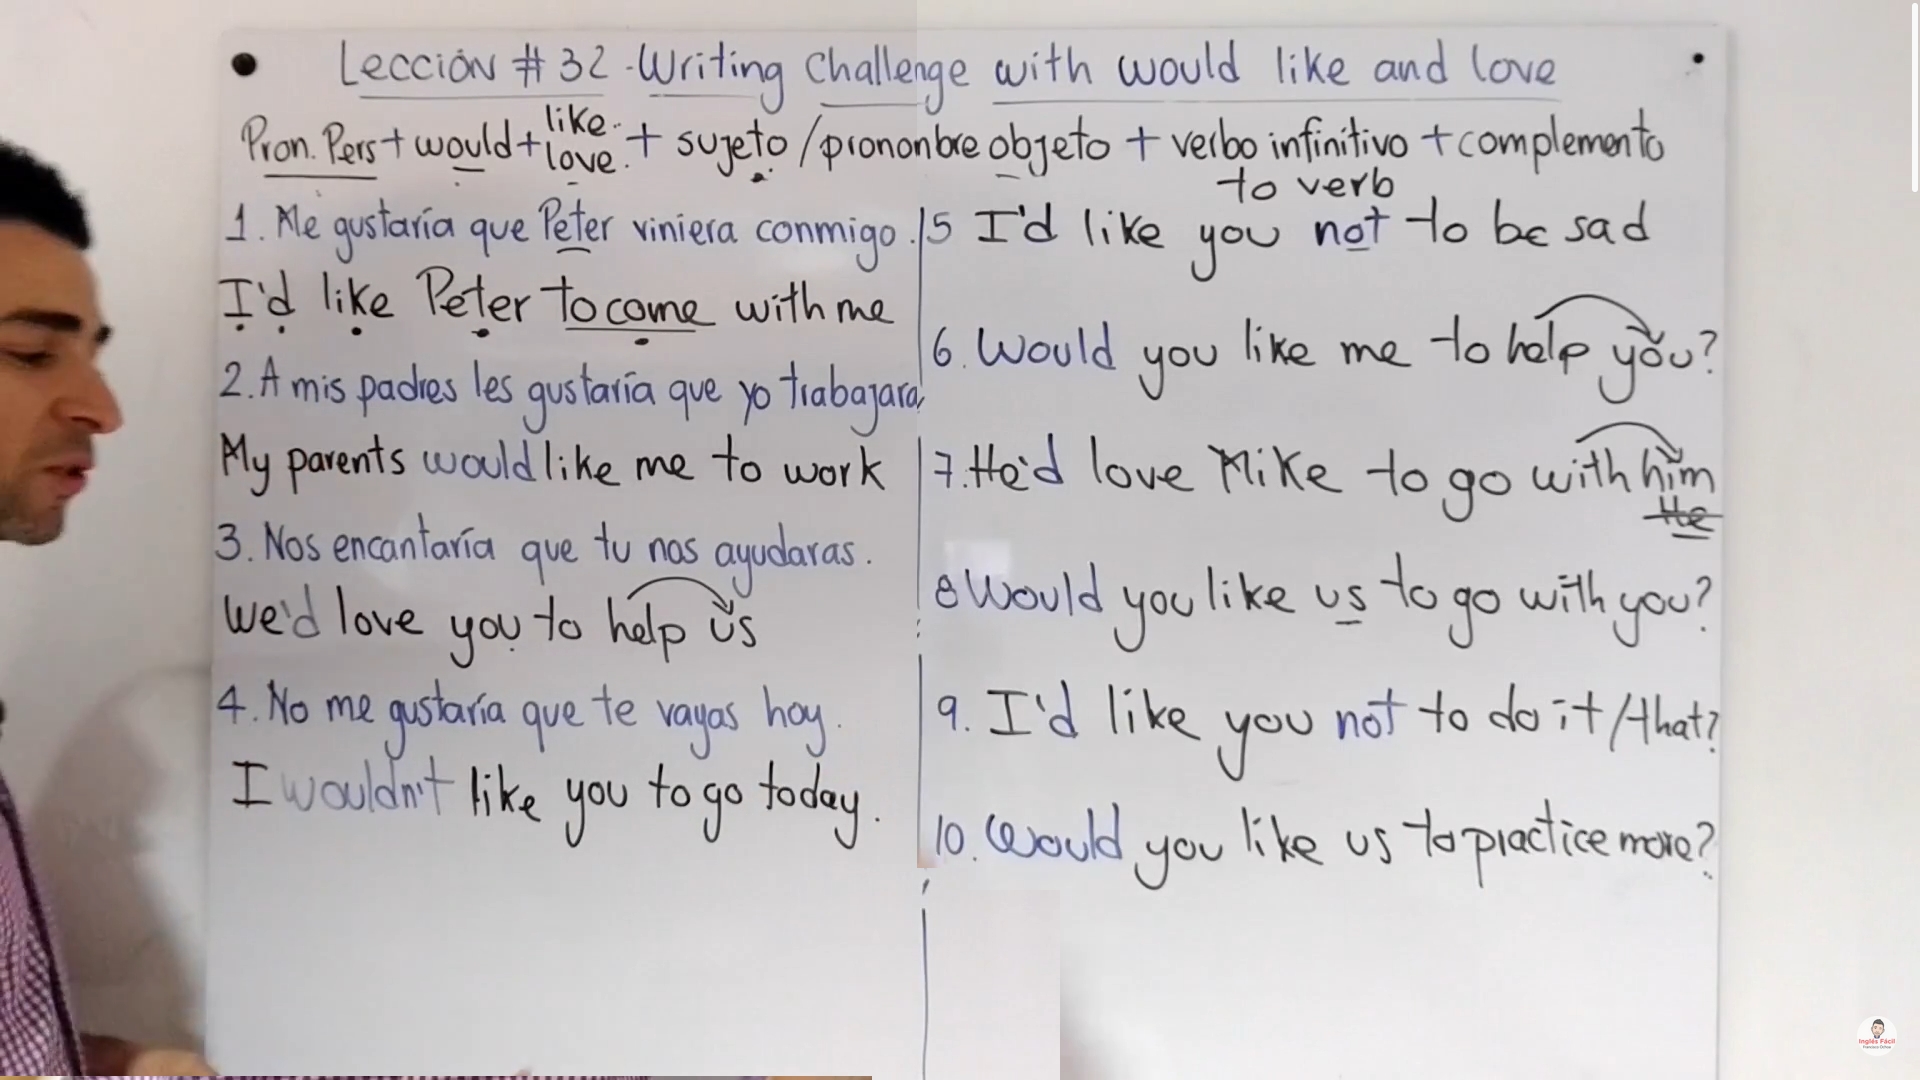 Lección # 32 - Writing Challenge with would like and love
Pron. Pers + would + like / love + sujeto / prononbre objeto + verbo infinitivo + complemento
to verb
1. Me gustaría que Peter viniera conmigo.
I'd like Peter to come with me
2. A mis padres les gustaría que yo trabajara
My parents would like me to work
3. Nos encantaría que tu nos ayudaras.
We'd love you to help us
4. No me gustaría que te vayas hoy.
I wouldn't like you to go today.
5 I'd like you not to be sad
6. Would you like me to help you?
7. He'd love Mike to go with him
He
8 Would you like us to go with you?
9. I'd like you not to do it / that?
10. Would you like us to practice more?
Inglés Fácil